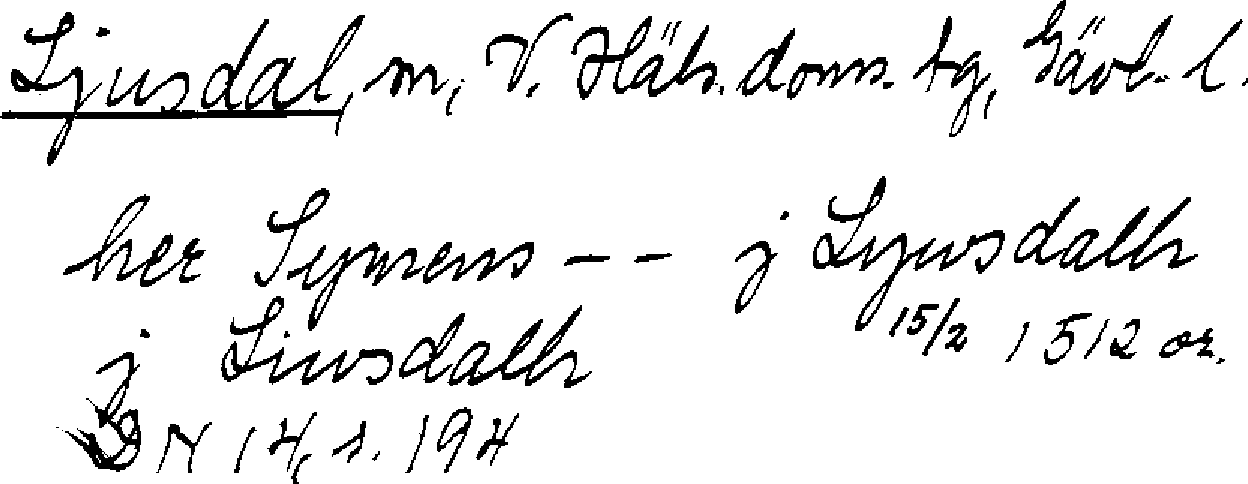 Ljusdal, sn, V. Häls. doms. tg, Gävl. l.
her Symens -- j Lywsdalh
15/2 1512 or.
j Liwsdalh
DN 14, s. 194